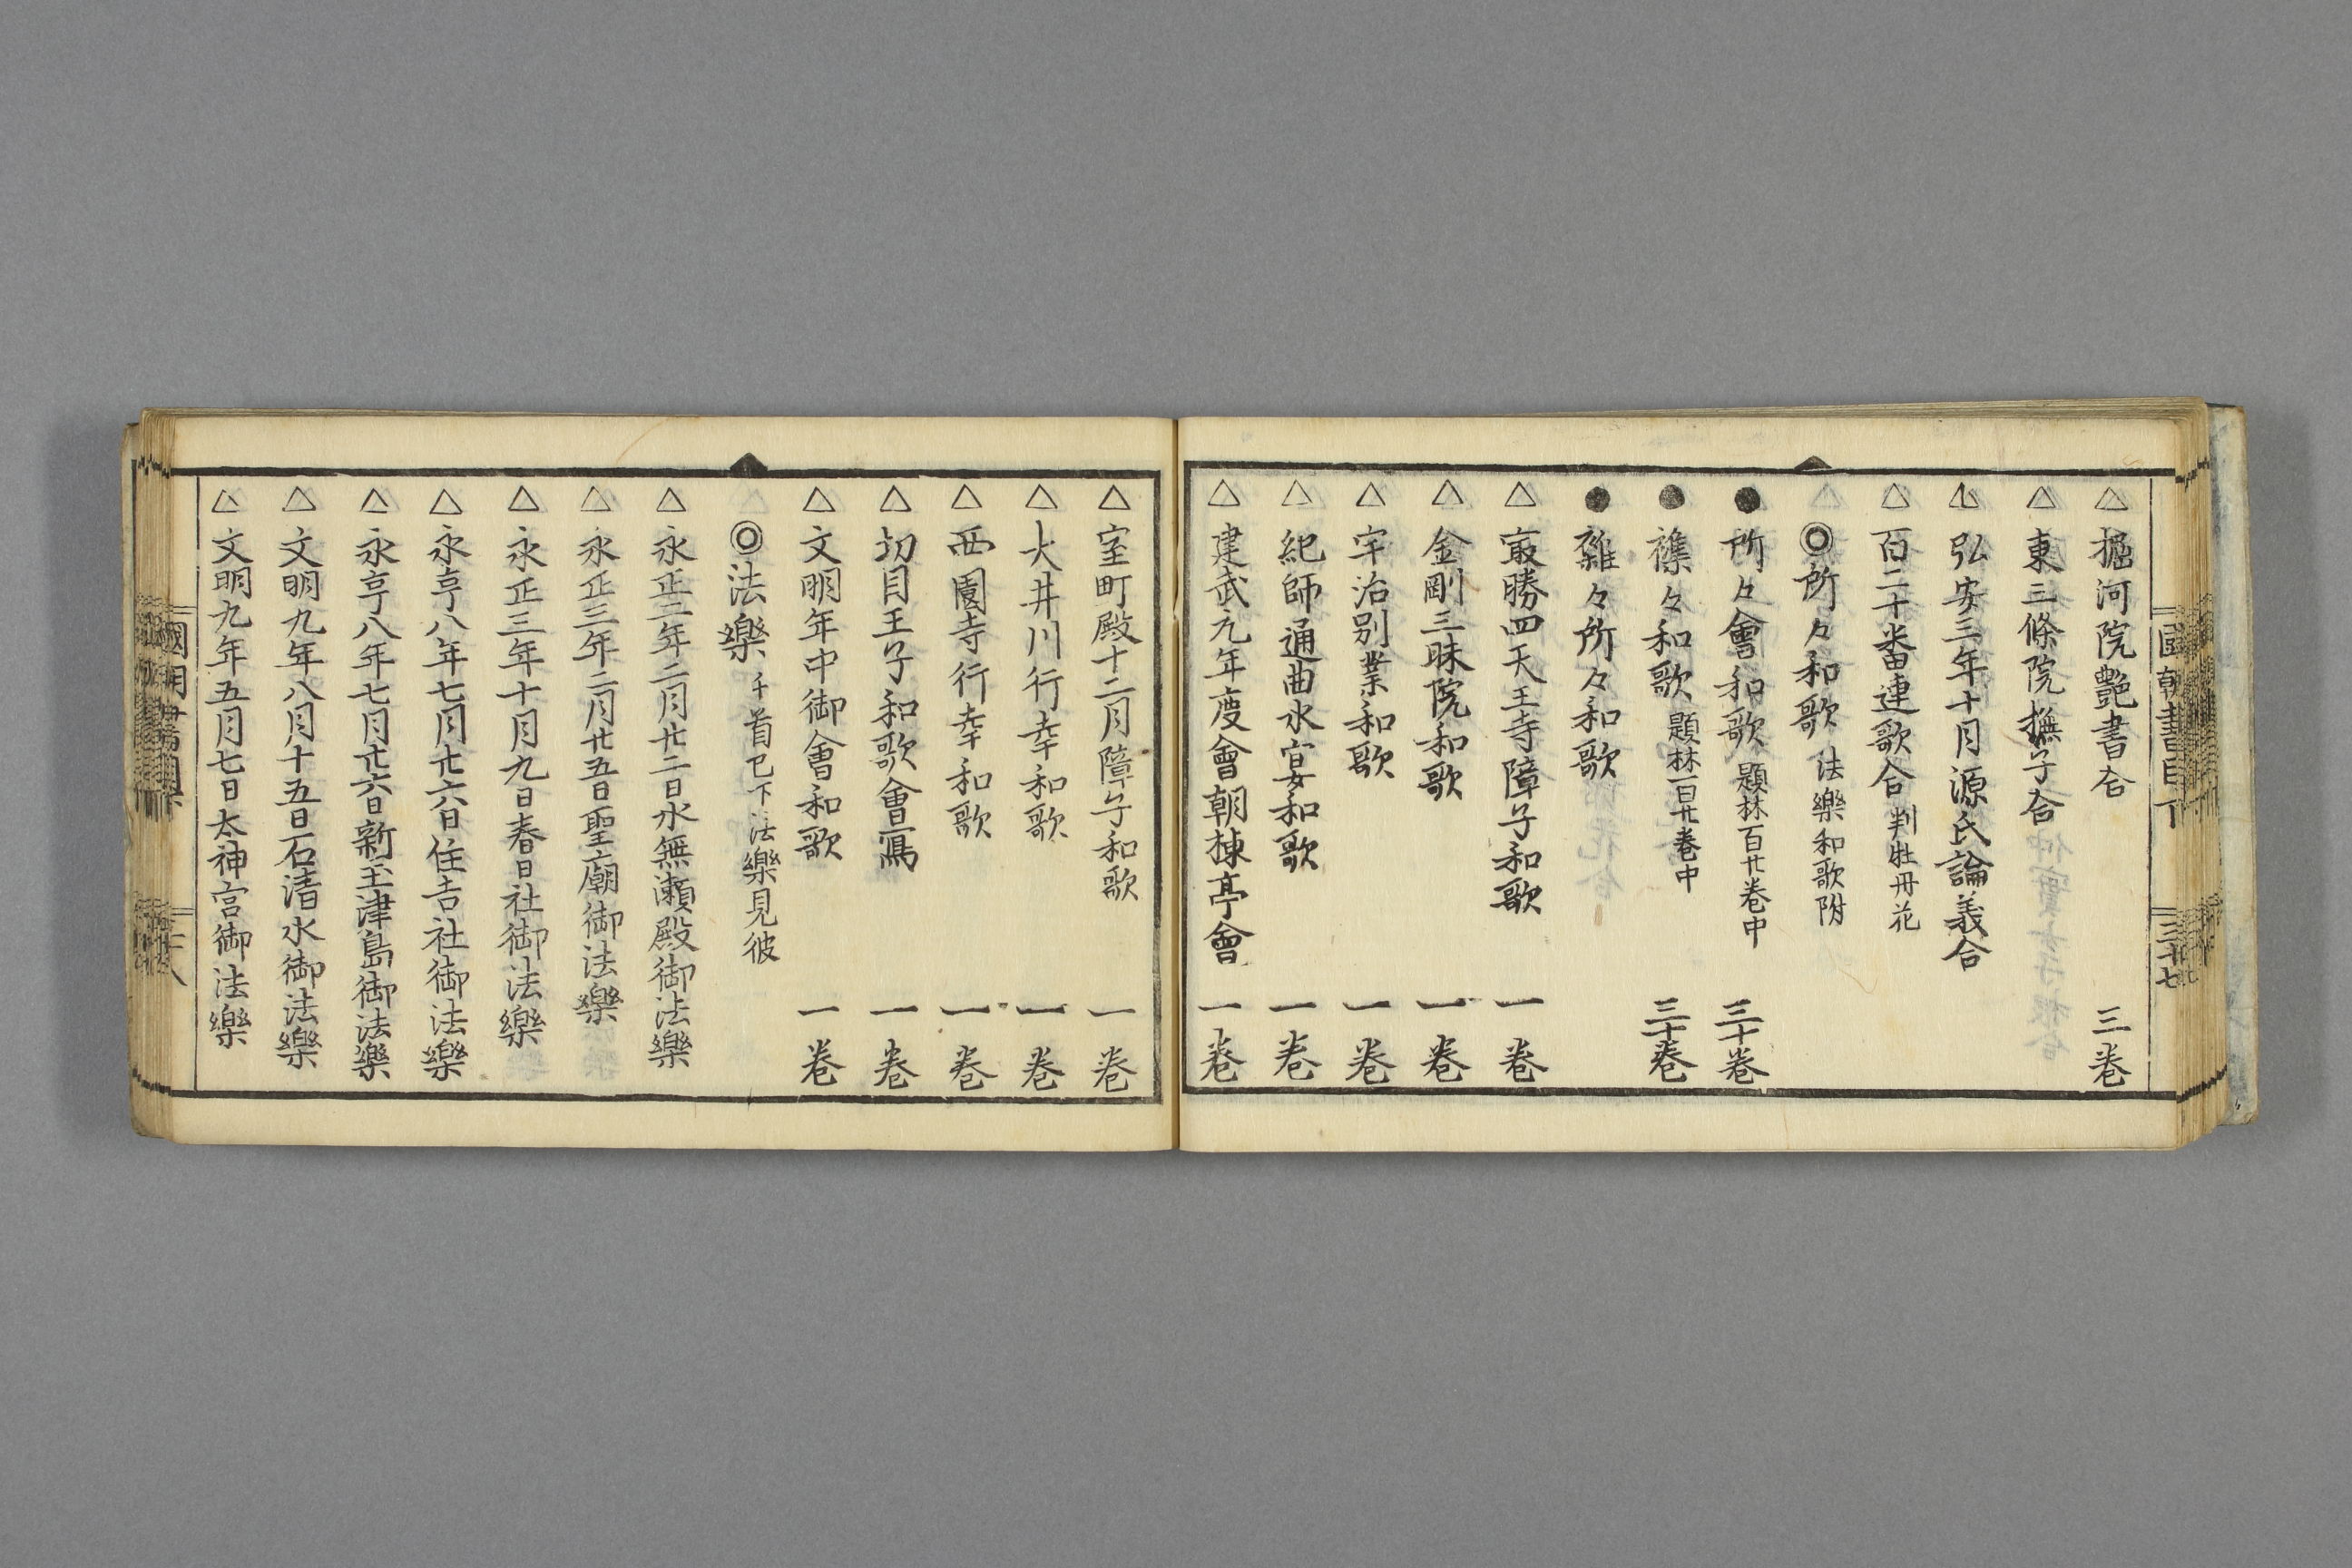 國朝書目下 三十七
△ 堀河院艷書合 三卷
△ 東三條院撫子合
△ 弘安三年十月源氏論義合
△ 百二十番連歌合 判牡丹花
◎所々和歌 法樂和歌附
● 所々會和歌 題林百廿卷中 三十卷
● 襍々和歌 題林百廿卷中 三十卷
● 雜々所々和歌
△ 㝡勝四天王寺障子和歌 一卷
△ 金剛三昧院和歌 一卷
△ 宇治別業和歌 一卷
△ 紀師通曲水宴和歌 一卷
△ 建武九年度會朝棟亭會 一卷
△ 室町殿十二月障子和歌 一卷
△ 大井川行幸和歌 一卷
△ 西園寺行幸和歌 一卷
△ 切目王子和歌會寫 一卷
△ 文明年中御會和歌 一卷
◎法樂 千首已下法樂見彼
△ 永正二年二月廿二日水無瀬殿御法樂
△ 永正三年二月廿五日聖廟御法樂
△ 永正三年十月九日春日社御法樂
△ 永亨八年七月廿六日住吉社御法樂
△ 永亨八年七月廿六日新玉津島御法樂
△ 文明九年八月十五日石清水御法樂
△ 文明九年五月七日太神宮御法樂